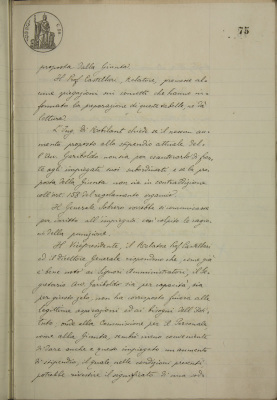 75
proposta della Giunta.
Il Prof. Castellari, Relatore, premesse al-
cune spiegazioni sui concetti che hanno in-
formato la preparazione di queste tabelle, ne dà
lettura.
L'Ing. di Robilant chiede se l'au
mento proposto allo stipendio attuale del-
l'Avv. Gariboldo non sia per
te agli impiegati suoi subordinati e se la pro-
posta della Giunta non sia in contraddizione
coll'art. del regolamento organico.
Il Generale Sobrero vorrebbe si comunicasse
per iscritto all'impiegato così colpito le ragio-
ni della punizione.
Il Vicepresidente, il Relatore Prof. Castellari
ed il Direttore Generale rispondono che come già
è ben noto ai Signori Amministratori, il Se-
gretario Avv. Gariboldo sia per capacità, sia
per zelo, non ha corrisposto finora alle
legittime aspirazioni ed ai bisogni dell'Isti-
tuto, onde alla Commissione per il Personale
come alla Giunta, sembrò meno conveniente
di dare anche a questo impiegato un aumento
di stipendio, il quale nelle condizioni presenti
potrebbe rivestire il significato di una